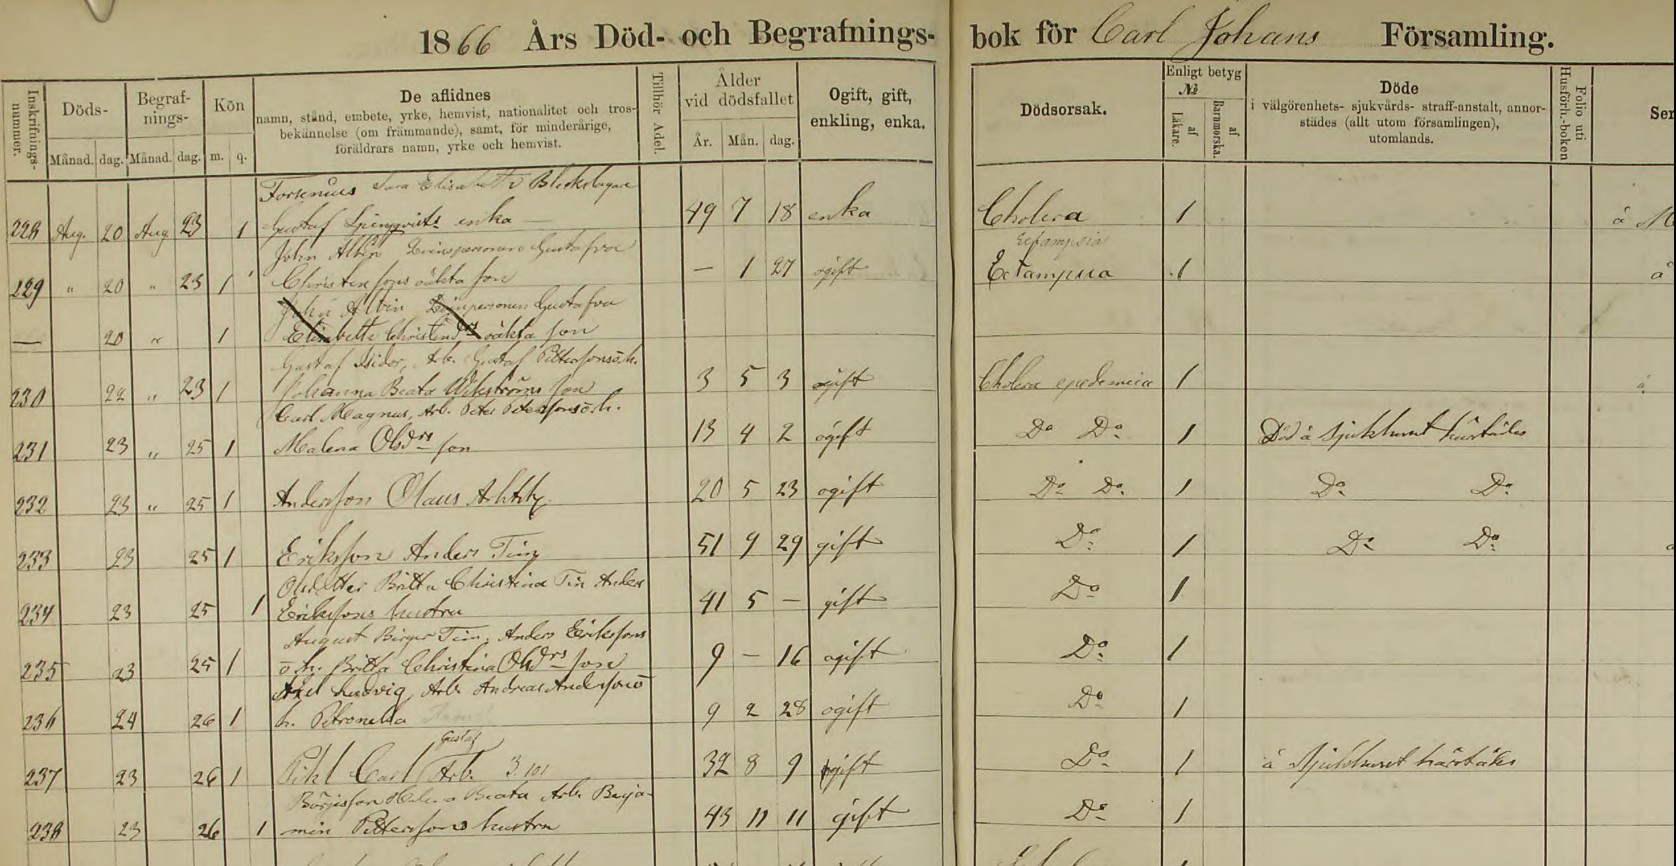 1866 Års Död- och Begrafnings-bok för Carl Johans Församling.
Inskrifnings-nummer.
Döds-
Månad. dag.
Begraf-nings-
Månad. dag.
Kön
m. q.
De aflidnes
namn, stånd, embete, yrke, hemvist, nationalitet och tros-
bekännelse (om främmande), samt, för minderårige,
föräldrars namn, yrke och hemvist.
Tillhör Adel.
Ålder
vid dödsfallet
År. Mån. dag.
Ogift, gift,
enkling, enka.
Dödsorsak.
Enligt betyg
af Läkare.
af Barnmorska.
Döde
i välgörenhets- sjukvårds- straff-anstalt, annor-
städes (allt utom församlingen),
utomlands.
Folio uti
Husförh.-boken
Ser
Sara Elisabeth Bleckslagare
228 Aug. 20 Aug 23 1 Gustaf enka 49 7 18 enka Cholera 1
John Albin Gustafva
229 " 20 " 23 1 Christens oäkta son — 1 27 ogift 1
John Albin Gustafva
— 20 " 1 Elisabeth oäkta son
Gustaf Isidor, Arb. Gustaf Pettersons o. h.
230 22 " 23 1 Johanna Beata Wikströms son 3 5 3 ogift Cholera epedemica 1
Carl Magnus, Arb. Peter Petersons o. h.
231 23 " 25 1 Malena Olsdrs son 13 4 2 ogift Do Do 1 Död å sjukhuset härstädes
232 23 " 25 1 Andersson Olaus 20 5 23 ogift Do Do 1 Do Do
233 23 25 1 Eriksson Anders Tim 51 9 29 gift Do 1 Do Do
Olsdotter Britta Christina Tim Anders
234 23 25 1 Erikssons hustru 41 5 — gift Do 1
August Birger Tim. Anders Erikssons
235 23 25 1 o. h. Britta Christina Olsdrs son 9 — 16 ogift Do 1
Axel Ludvig, Arb. Andreas Anderssons o
236 24 26 1 h. Petronella 9 2 28 ogift Do 1
Gustaf
237 23 26 1 Pihl Carl Arb. 3.101 32 8 9 gift Do 1 å Sjukhuset härstädes
Börjesson Helena Beata Arb. Benja-
238 23 26 1 min Petterssons hustru 43 11 11 gift Do 1